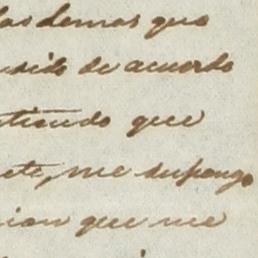 las demas que
sido de acuerdo
tiendo que
ete, me supongo
cion que me